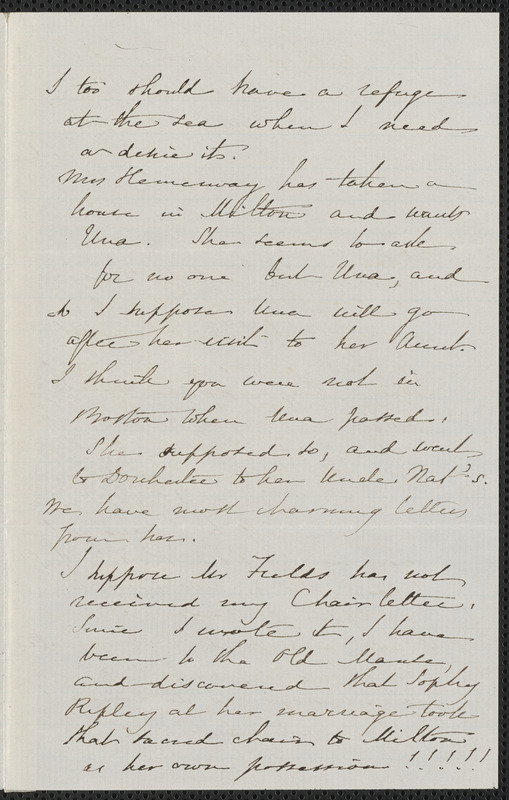 I too should have a refuge
at the sea when I need
or desire it.
Mrs Hemenway has taken a
house in Milton and wants
Una. She seems to ask
for no one but Una, and
so I suppose Una will go
after her visit to her Aunt.
I think you were not in
Boston when Una passed.
She supposed so, and went
to Dorchester to her Uncle Nat's.
We have most charming letters
from her.
I suppose Mr Fields has not
received my Chair letter.
Since I wrote it, I have
been to the Old Manse,
and discovered that Sophy
Ripley at her marriage took
that sacred chair to Milton
as her own possession !!!!!